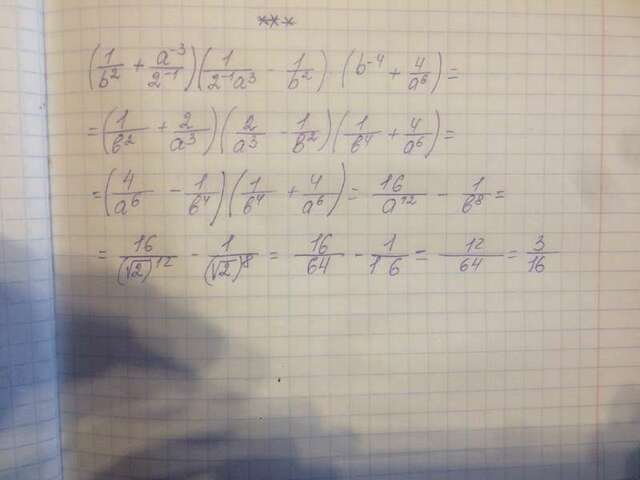 ***
(1/b² + a⁻³/2⁻¹)(1/2⁻¹a³ - 1/b²) (b⁻⁴ + 4/a⁶) =
= (1/b² + 2/a³)(2/a³ - 1/b²)(1/b⁴ + 4/a⁶) =
= (4/a⁶ - 1/b⁴)(1/b⁴ + 4/a⁶) = 16/a¹² - 1/b⁸ =
= 16/(√2)¹² - 1/(√2)⁸ = 16/64 - 1/16 = 12/64 = 3/16